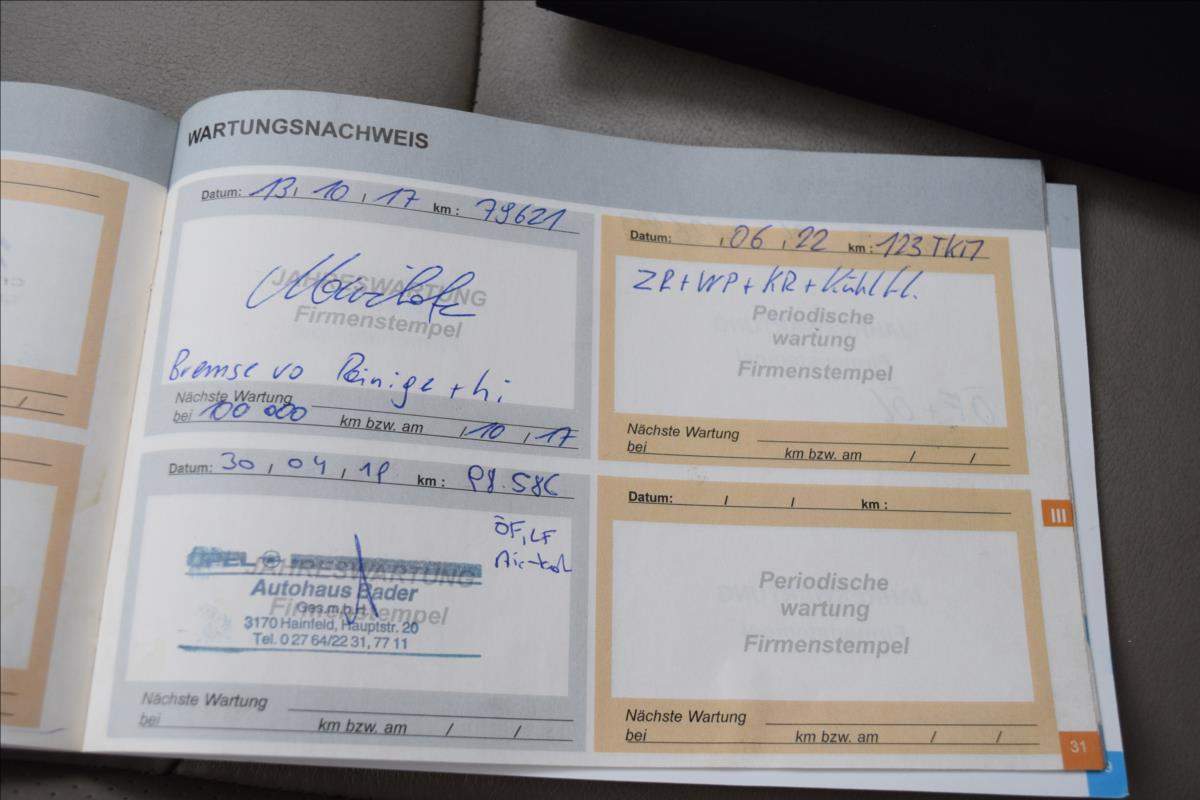 WARTUNGSNACHWEIS
Datum: 13, 10, 17 km: 79621
JAHRESWARTUNG
Firmenstempel
Bremse vo Reinige + hi
Nächste Wartung
bei 100 000 km bzw. am 10, 17
Datum: 30, 04, 19 km: 98.586
ÖF, LF
OPEL
JAHRESWARTUNG
Autohaus Bader
Firmenstempel
Ges.m.b.H.
3170 Hainfeld, Hauptstr. 20
Tel. 0 27 64/22 31, 77 11
Nächste Wartung
bei km bzw. am / /
Datum: ,06, 22 km: 123 TKM
ZR+WP+KR+Kühlfl.
Periodische
wartung
Firmenstempel
Nächste Wartung
bei km bzw. am / /
Datum: / / km:
Periodische
wartung
Firmenstempel
Nächste Wartung
bei km bzw. am / /
III
31